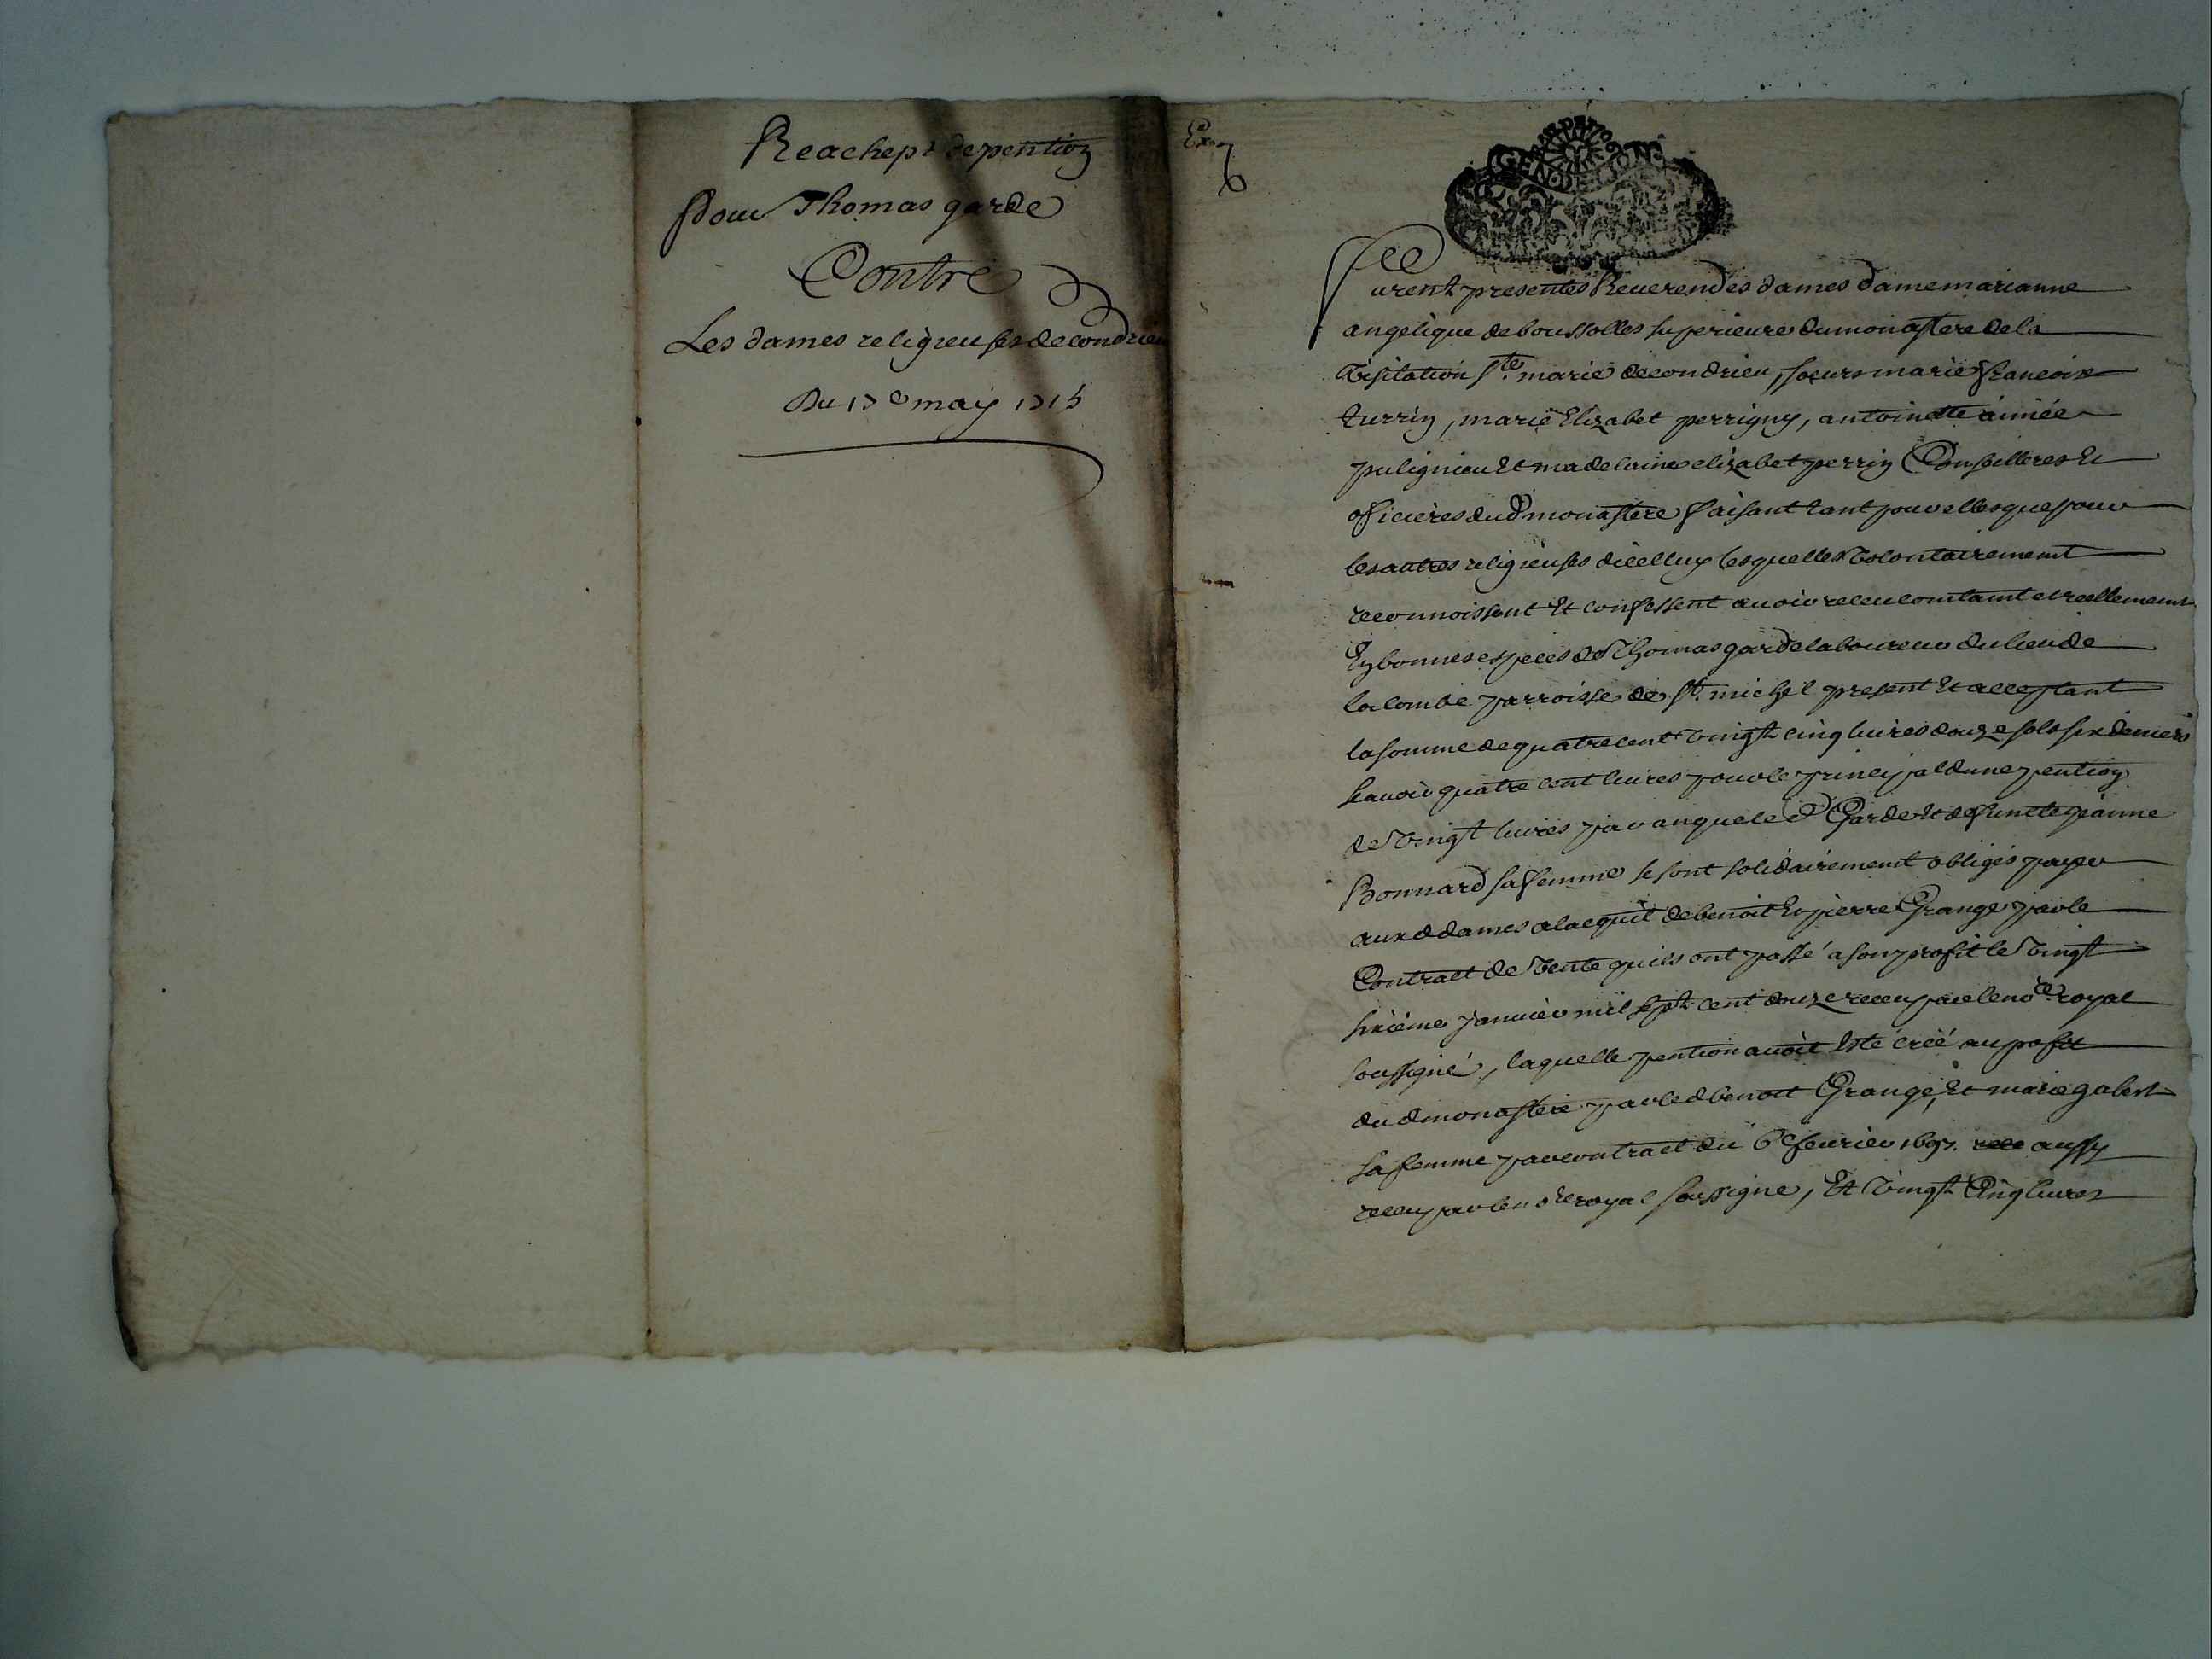 Reachept de pention
Pour Thomas garde
Contre
Les dames religieuses de condrieu
Du 17e may 1715
Exp
GEN DE LION
Furent presentes Reuerendes dames dame marianne
angelique de boussolles superieure du monastere de la
Visitation ste. marie de condrieu, soeurs marie francoise
turrin, marie Elizabet perrigny, antoinette aimée
pulignieu Et madelaine elizabet perrin Conseilleres Et
oficieres dud monastere faisant tant pour elles que pour
les autres religieuses dicelluy lesquelles Volontairement
reconnoissent Et confessent auoir receu comtamt et reellement
En bonnes especes de Thomas garde laboureur du lieu de
la combe parroisse de st. michel present Et acceptant
la somme de quatre cent Vingt cinq liures douze sols six deniers
scauoir quatre cent liures pour le principal dune pention
de Vingt liures par an que led Garde Et defuncte jeanne
Bonnard sa femme se sont solidairement obligés payer
auxd dames a lacquit de benoit Et pierre Grange par le
Contract de Vente quils ont passé a son profit le Vingt
sixième januier mil sept cent douze receu par le nore royal
soussigné, laquelle pention auoit Esté créé au profit
dud monastere par led benoit Grange, Et marie galbert
sa femme par contract du 6e feurier 1697. aussy
receu par le nore royal soussigne, Et Vingt Cinq liures